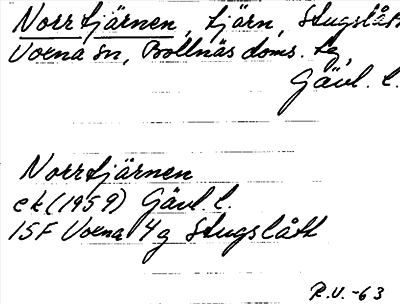 Norrtjärnen, tjärn, Stugslått
Voxna sn, Bollnäs doms. tg,
Gävl. l.
Norrtjärnen
ek (1959) Gävl. l.
ISF Voxna 4 g Stugslått
R.U. -63